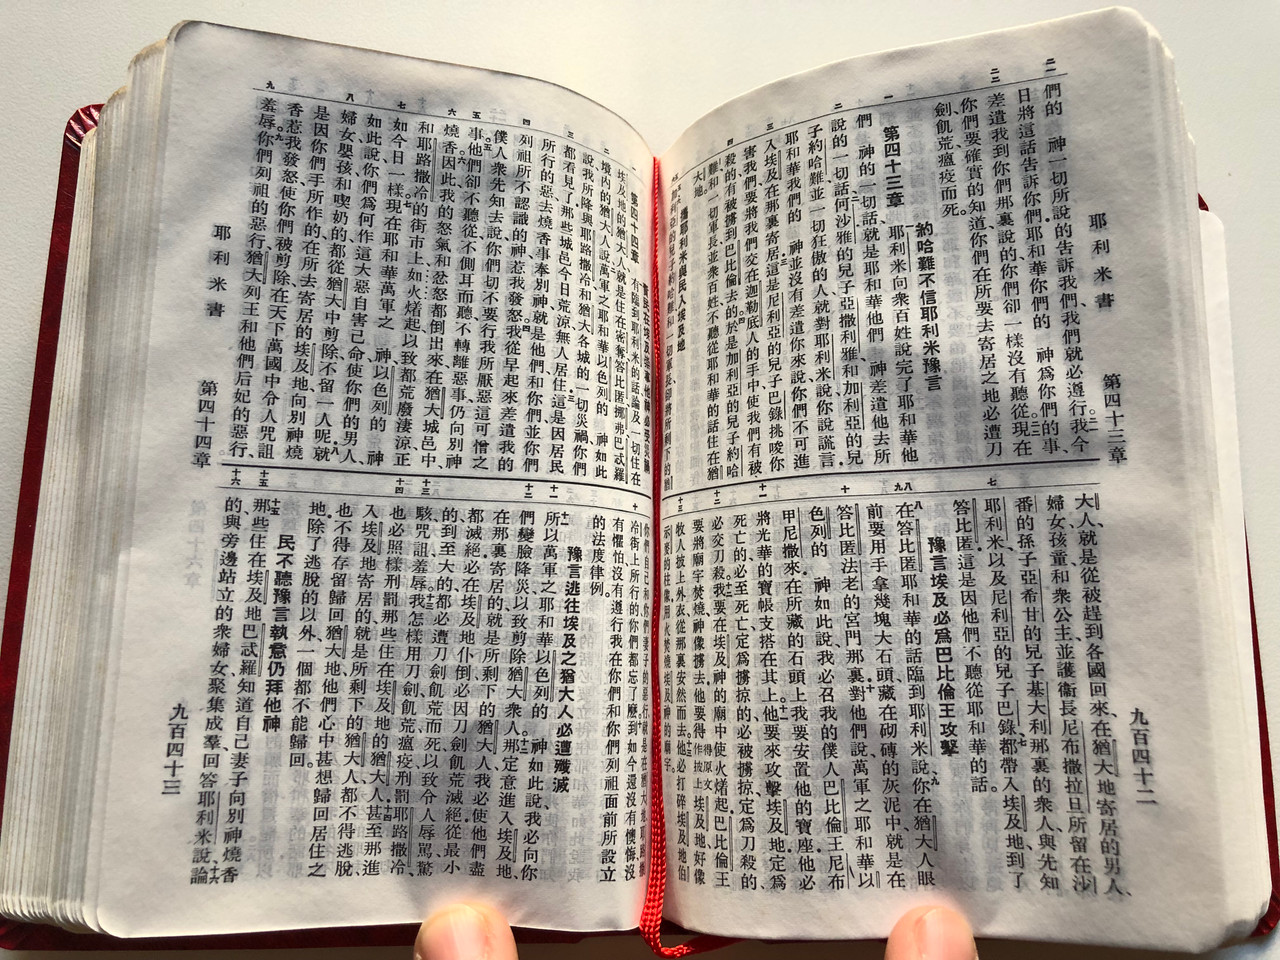 耶利米書 第四十三章 九百四十二
們的 神一切所說的告訴我們、我們就必遵行。我今
日將這話告訴你們、耶和華你們的 神爲你們的事、
差遣我到你們那裏說的、你們卻一樣沒有聽從。現在
你們要確實的知道、你們在所要去寄居之地必遭刀
劍、飢荒、瘟疫而死。
約哈難不信耶利米豫言
第四十三章 耶利米向衆百姓說完了耶和華他
們 神的一切話、就是耶和華他們 神差遣他去所
說的一切話、何沙雅的兒子亞撒利雅和加利亞的兒
子約哈難、並一切狂傲的人、就對耶利米說、你說謊言、
耶和華我們的 神並沒有差遣你來說、你們不可進
入埃及、在那裏寄居。這是尼利亞的兒子巴錄挑唆你
害我們、要將我們交在迦勒底人的手中、使我們有被
殺的、有被擄到巴比倫去的。於是加利亞的兒子約哈
難和一切軍長、並衆百姓、不聽從耶和華的話住在猶
大地。
攜耶利米與民入埃及地
大人、就是從被趕到各國回來、在猶大地寄居的男人、
婦女、孩童、和衆公主、並護衛長尼布撒拉旦所留在沙
番的孫子亞希甘的兒子基大利那裏的衆人、與先知
耶利米、以及尼利亞的兒子巴錄、都帶入埃及地、到了
答比匿。這是因他們不聽從耶和華的話。
豫言埃及必爲巴比倫王攻擊
在答比匿、耶和華的話臨到耶利米說、你在猶大人眼
前要用手拿幾塊大石頭、藏在砌磚的灰泥中、就是在
答比匿法老的宮門那裏、對他們說、萬軍之耶和華以
色列的 神如此說、我必召我的僕人巴比倫王尼布
甲尼撒來、在所藏的石頭上、我要安置他的寶座、他必
將光華的寶帳支搭在其上。他要來攻擊埃及地、定爲
死亡的、必至死亡、定爲擄掠的、必被擄掠、定爲刀殺的、
必交刀殺。我要在埃及神的廟中使火燄起、巴比倫王
要將廟宇焚燒、神像擄去。他要得原文作披上埃及地、好像
牧人披上外衣、從那裏安然而去。他必打碎埃及地伯
示麥的柱像、用火焚燒埃及神的廟宇。
耶利米書 第四十四章 九百四十三
第四十四章 有臨到耶利米的話、論及一切住在
埃及地的猶大人、就是住在密奪、答比匿、挪弗、巴忒羅
境內的猶大人、說、萬軍之耶和華以色列的 神如此
說、我所降與耶路撒冷和猶大各城的一切災禍、你們
都看見了、那些城邑今日荒涼無人居住。這是因居民
所行的惡、去燒香事奉別神、就是他們和你們、並你們
列祖、所不認識的神、惹我發怒。我從早起來差遣我的
僕人衆先知去說、你們切不要行我所厭惡這可憎之
事。他們卻不聽從、不側耳而聽、不轉離惡事、仍向別神
燒香。因此我的怒氣和忿怒都倒出來、在猶大城邑中、
和耶路撒冷的街市上、如火燄起、以致都荒廢淒涼、正
如今日一樣。現在耶和華萬軍之 神以色列的 神
如此說、你們爲何作這大惡、自害己命、使你們的男人、
婦女、嬰孩、和喫奶的、都從猶大中剪除、不留一人呢。就
是因你們手所作的、在所去寄居的埃及地向別神燒
香、惹我發怒、使你們被剪除、在天下萬國中令人咒詛
羞辱。你們列祖的惡行、猶大列王和他們后妃的惡行、
你們自己和你們妻子的惡行、就是在猶大地、耶路撒
冷街上所行的、你們都忘了麼。到如今還沒有懊悔、沒
有懼怕、沒有遵行我在你們和你們列祖面前所設立
的法度律例。
豫言逃往埃及之猶大人必遭殲滅
所以萬軍之耶和華以色列的 神如此說、我必向你
們變臉降災、以致剪除猶大衆人。那定意進入埃及地、
在那裏寄居的、就是所剩下的猶大人、我必使他們盡
都滅絕、必在埃及地仆倒、必因刀劍飢荒滅絕、從最小
的到至大的、都必遭刀劍飢荒而死、以致令人辱罵、驚
駭、咒詛、羞辱。我怎樣用刀劍、飢荒、瘟疫、刑罰耶路撒冷、
也必照樣刑罰那些住在埃及地的猶大人、甚至那進
入埃及地寄居的、就是所剩下的猶大人、都不得逃脫、
也不得存留歸回猶大地、他們心中甚想歸回居住之
地、除了逃脫的以外、一個都不能歸回。
民不聽豫言執意仍拜他神
那些住在埃及地巴忒羅、知道自己妻子向別神燒香
的、與旁邊站立的衆婦女、聚集成羣、回答耶利米說、論